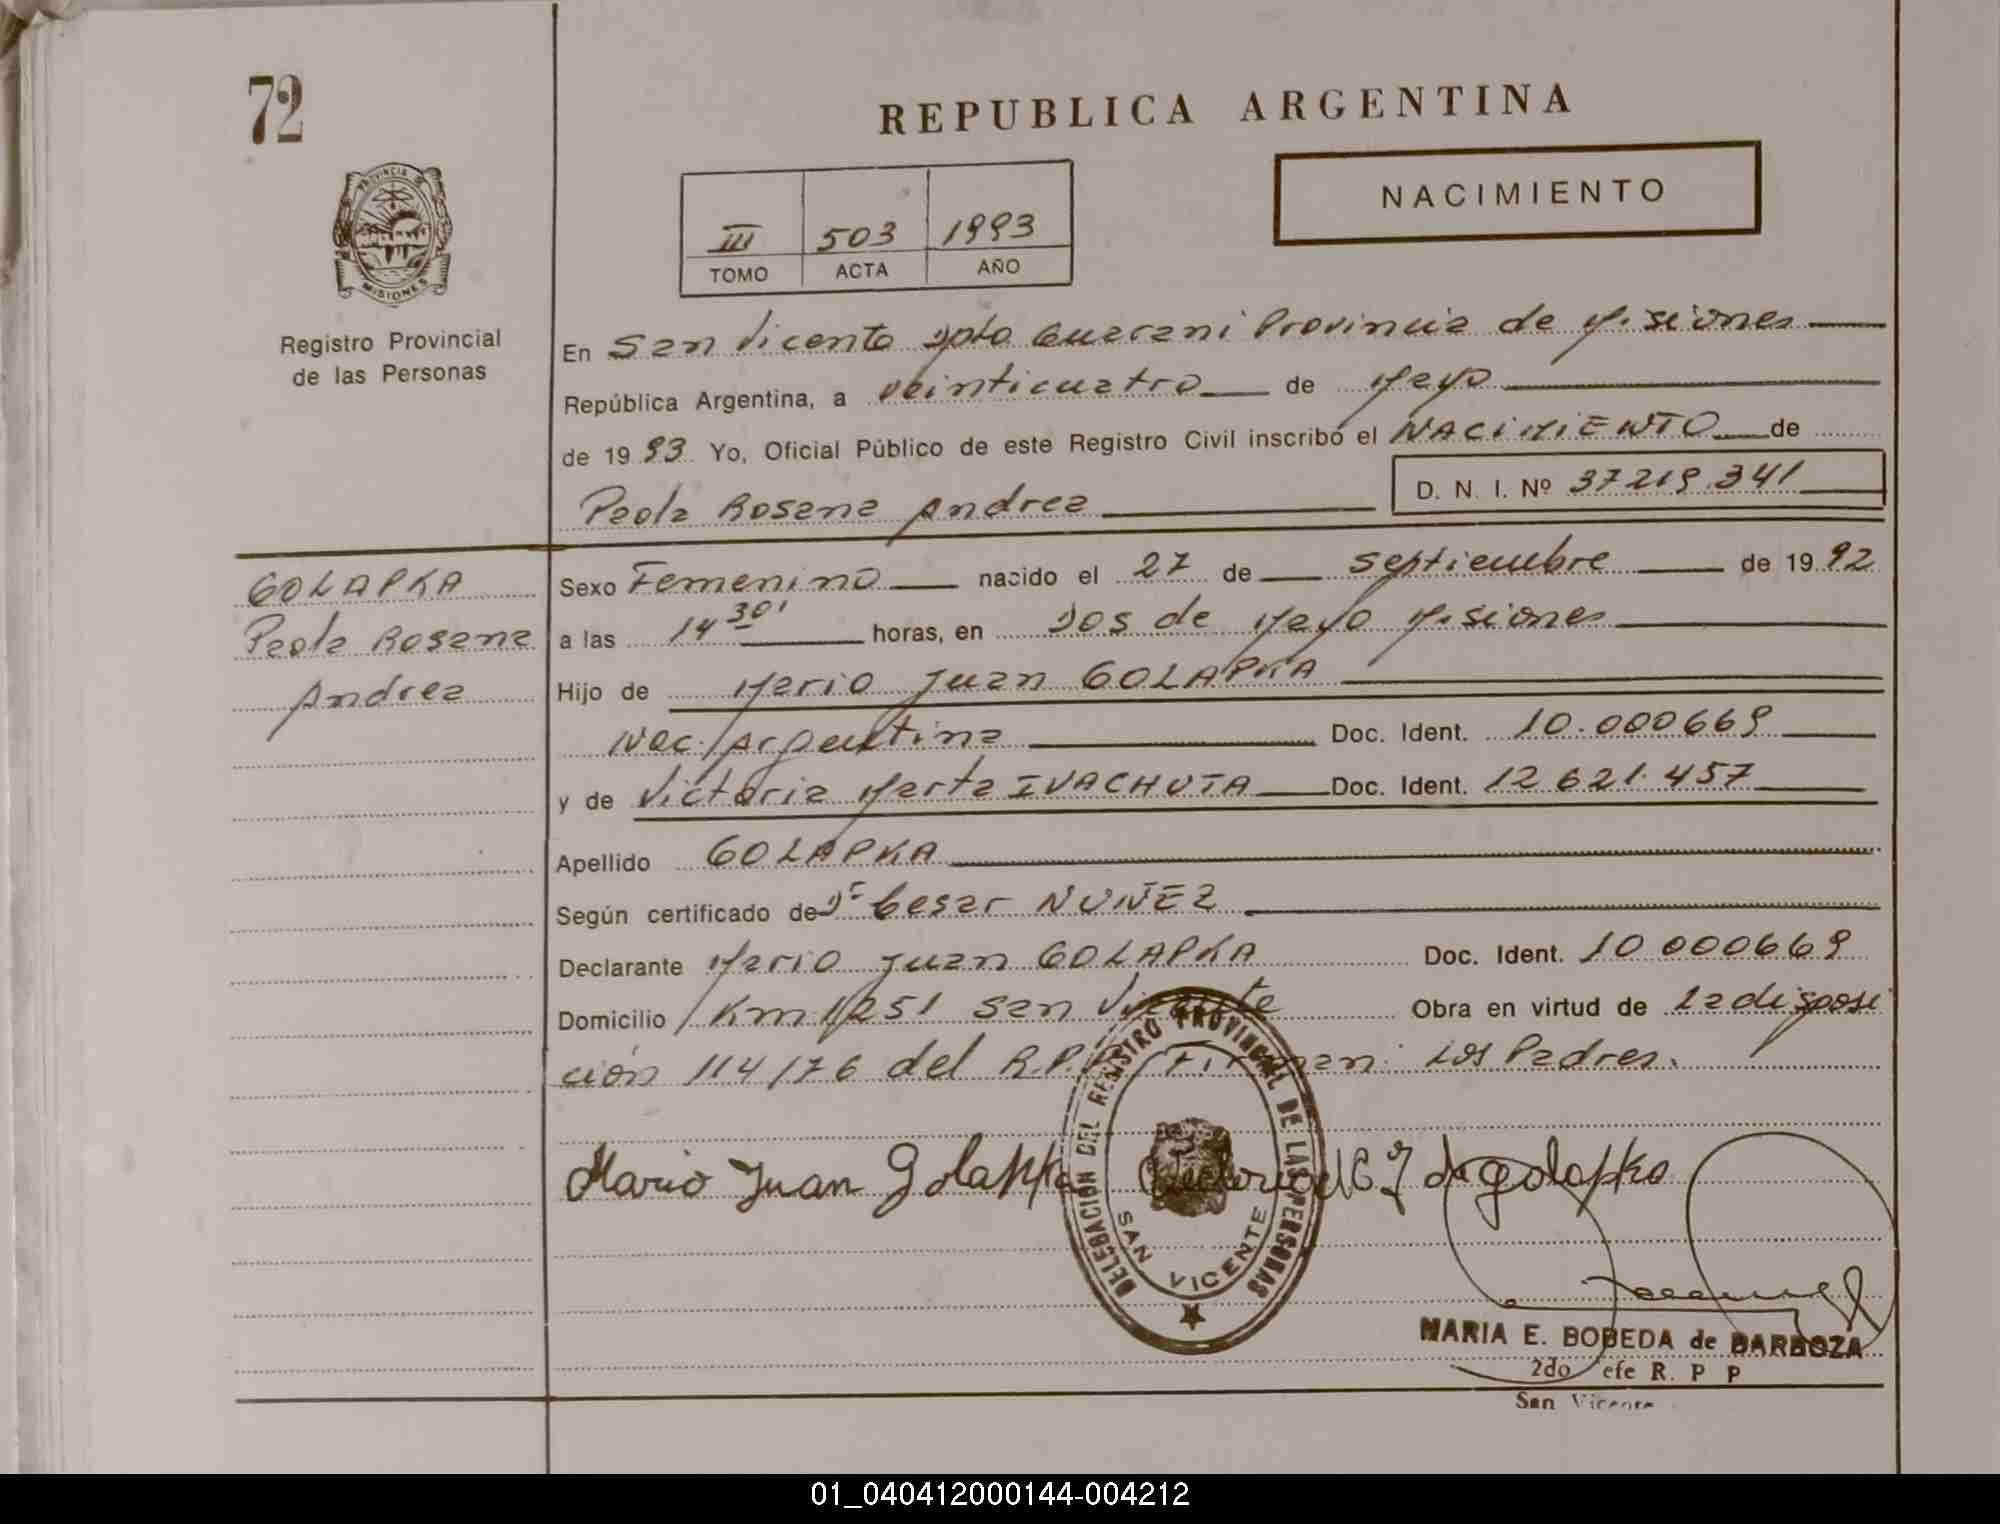 72
REPUBLICA ARGENTINA
NACIMIENTO
III 503 1993
TOMO ACTA AÑO
PROVINCIA DE
MISIONES
Registro Provincial
de las Personas
En San Vicente Dpto Guarani Provincia de Misiones
República Argentina, a veinticuatro de Mayo
de 1993 Yo, Oficial Público de este Registro Civil inscribo el NACIMIENTO de
Paola Rosana Andrea D. N. I. Nº 37219.341
GOLAPKA
Paola Rosana
Andrea
Sexo Femenino nacido el 27 de Septiembre de 1992
a las 14 30' horas, en Dos de Mayo Misiones
Hijo de Mario Juan GOLAPKA
Nac. Argentina Doc. Ident. 10.000669
y de Victoria Marta IVACHUTA Doc. Ident. 12 621.457
Apellido GOLAPKA
Según certificado de Dr Cesar NUÑEZ
Declarante Mario Juan GOLAPKA Doc. Ident. 10 000669
Domicilio Km 1251 San Vicente Obra en virtud de la disposi
ción 114/76 del R.P.P. Firman: los Padres.
Mario Juan Golapka de golapka
DELEGACION DEL REGISTRO PROVINCIAL DE LAS PERSONAS
SAN VICENTE
MARIA E. BOBEDA de BARBOZA
2do Jefe R. P P
San Vicente
01_040412000144-004212